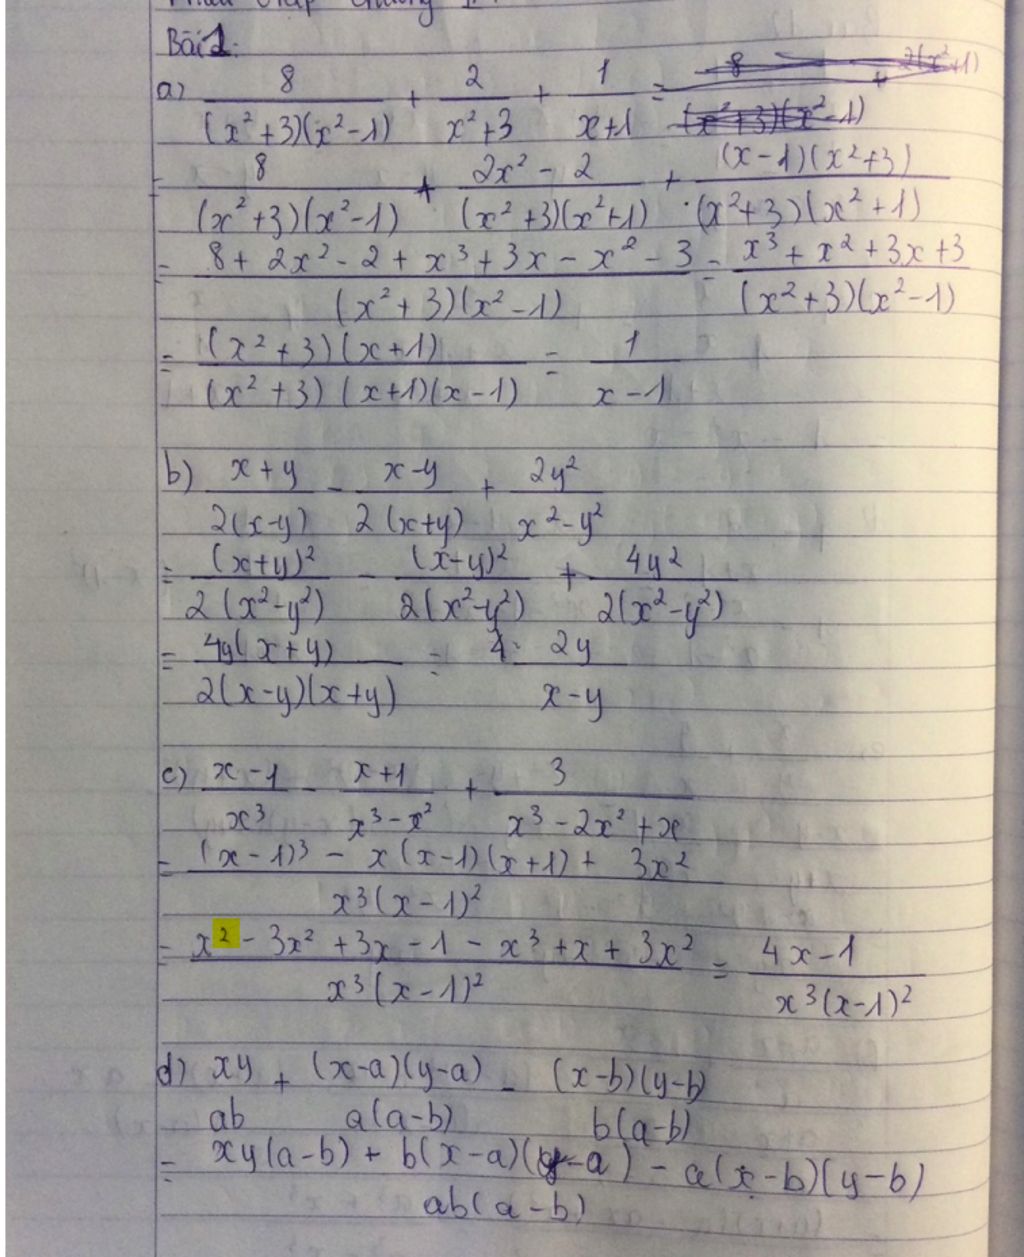 Bài 1:
a) 8/((x²+3)(x²-1)) + 2/(x²+3) + 1/(x+1) =
= 8/((x²+3)(x²-1)) + (2x²-2)/((x²+3)(x²+1)) + ((x-1)(x²+3))/((x²+3)(x²+1))
= (8+2x²-2+x³+3x-x²-3)/((x²+3)(x²-1)) = (x³+x²+3x+3)/((x²+3)(x²-1))
= ((x²+3)(x+1))/((x²+3)(x+1)(x-1)) = 1/(x-1)
b) (x+y)/(2(x-y)) - (x-y)/(2(x+y)) + 2y²/(x²-y²)
= (x+y)²/(2(x²-y²)) - (x-y)²/(2(x²-y²)) + 4y²/(2(x²-y²))
= 4y(x+y)/(2(x-y)(x+y)) = 2y/(x-y)
c) (x-1)/x³ - (x+1)/(x³-x²) + 3/(x³-2x²+x)
= ((x-1)³ - x(x-1)(x+1) + 3x²)/(x³(x-1)²)
= (x²-3x²+3x-1-x³+x+3x²)/(x³(x-1)²) = (4x-1)/(x³(x-1)²)
d) xy/ab + (x-a)(y-a)/(a(a-b)) - (x-b)(y-b)/(b(a-b))
= (xy(a-b) + b(x-a)(y-a) - a(x-b)(y-b))/(ab(a-b))